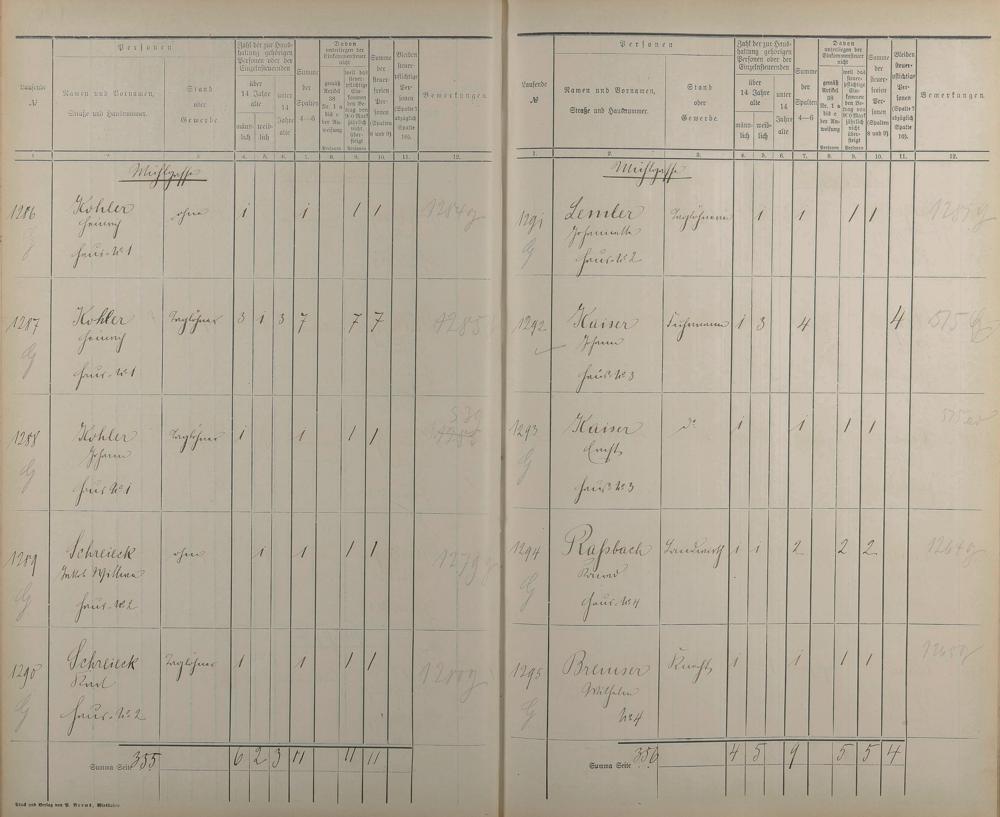 Laufende
№
Personen
Namen und Vornamen,
Straße und Hausnummer.
Stand
oder
Gewerbe.
Zahl der zur Haus-
haltung gehörigen
Personen oder der
Einzelnsteuernden
über
14 Jahre
alte
männ-
lich
weib-
lich
unter
14
Jahre
alte
Summe
der
Spalten
4—6
Davon
unterliegen der
Einkommensteuer
nicht
gemäß
Artikel
38
Nr. 1 a
bis e
der An-
weisung
Personen
weil das
steuer-
pflichtige
Ein-
kommen
den Be-
trag von
900 Mark
jährlich
nicht
über-
steigt
Personen
Summe
der
steuer-
freien
Per-
sonen
(Spalten
8 und 9)
Bleiben
steuer-
pflichtige
Per-
sonen
(Spalte 7
abzüglich
Spalte
10).
Bemerkungen.
1. 2. 3. 4. 5. 6. 7. 8. 9. 10. 11. 12.
Mühlgasse
1286 Kohler ohne 1 1 1 1 1284 g
G Heinrich
Haus-No 1
1287 Kohler Taglöhner 3 1 3 7 7 7 1285
G Heinrich
Haus-No 1
1288 Kohler Taglöhner 1 1 1 1
G Johann
Haus No 1
1289 Schreieck ohne 1 1 1 1 1279 g
G Jakob Wittwe
Haus-No 2
1290 Schreieck Taglöhner 1 1 1 1
G Karl
Haus-No 2
Summa Seite 355 6 2 3 11 11 11
Druck und Verlag von P. Brenz, Wiesbaden
Laufende
№
Personen
Namen und Vornamen,
Straße und Hausnummer.
Stand
oder
Gewerbe.
Zahl der zur Haus-
haltung gehörigen
Personen oder der
Einzelnsteuernden
über
14 Jahre
alte
männ-
lich
weib-
lich
unter
14
Jahre
alte
Summe
der
Spalten
4—6
Davon
unterliegen der
Einkommensteuer
nicht
gemäß
Artikel
38
Nr. 1 a
bis e
der An-
weisung
Personen
weil das
steuer-
pflichtige
Ein-
kommen
den Be-
trag von
900 Mark
jährlich
nicht
über-
steigt
Personen
Summe
der
steuer-
freien
Per-
sonen
(Spalten
8 und 9)
Bleiben
steuer-
pflichtige
Per-
sonen
(Spalte 7
abzüglich
Spalte
10).
Bemerkungen.
1. 2. 3. 4. 5. 6. 7. 8. 9. 10. 11. 12.
Mühlgasse
1291 Lemler Taglöhnerin 1 1 1 1 1285 g
G Johannette
Haus-No 2
1292 Kaiser Fuhrmann 1 3 4 4 515
Johann
Haus No 3
1293 Kaiser do 1 1 1 1
G Ernst
Haus No 3
1294 Raßbach Landwirth 1 1 2 2 2 1264 g
G Konrad
Haus-No 4
1295 Bremser Knecht 1 1 1 1 1265 g
G Wilhelm
No 4
Summa Seite 356 4 5 9 5 5 4